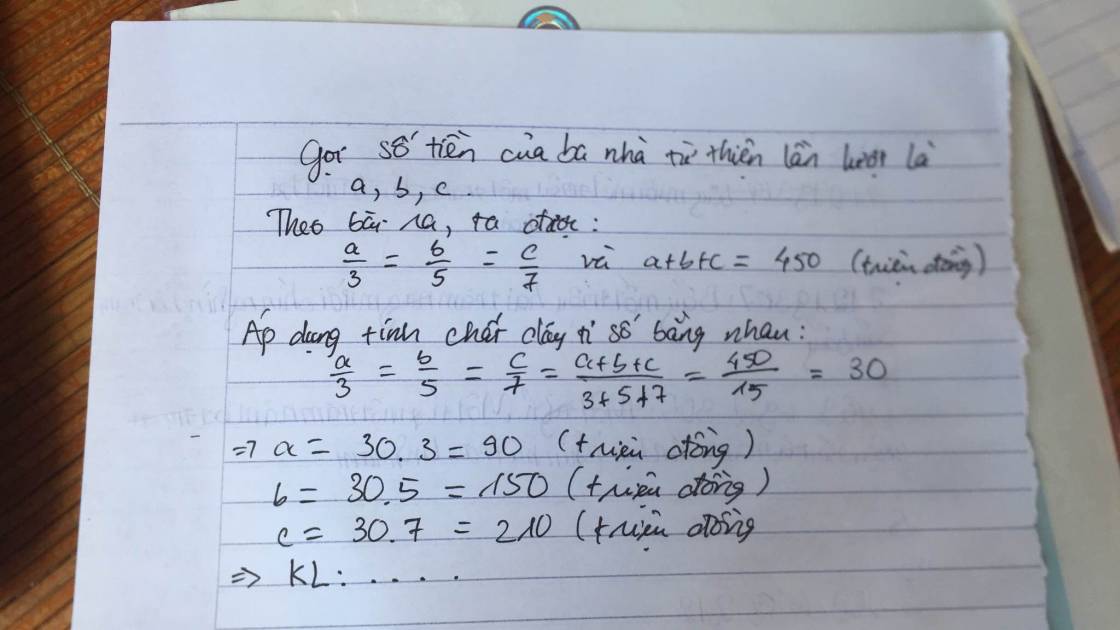 Gọi số tiền của ba nhà từ thiện lần lượt là
a, b, c.
Theo bài ra, ta được:
a/3 = b/5 = c/7 và a+b+c = 450 (triệu đồng)
Áp dụng tính chất dãy tỉ số bằng nhau:
a/3 = b/5 = c/7 = a+b+c/3+5+7 = 450/15 = 30
=> a = 30.3 = 90 (triệu đồng)
b = 30.5 = 150 (triệu đồng)
c = 30.7 = 210 (triệu đồng
=> KL: . . . .